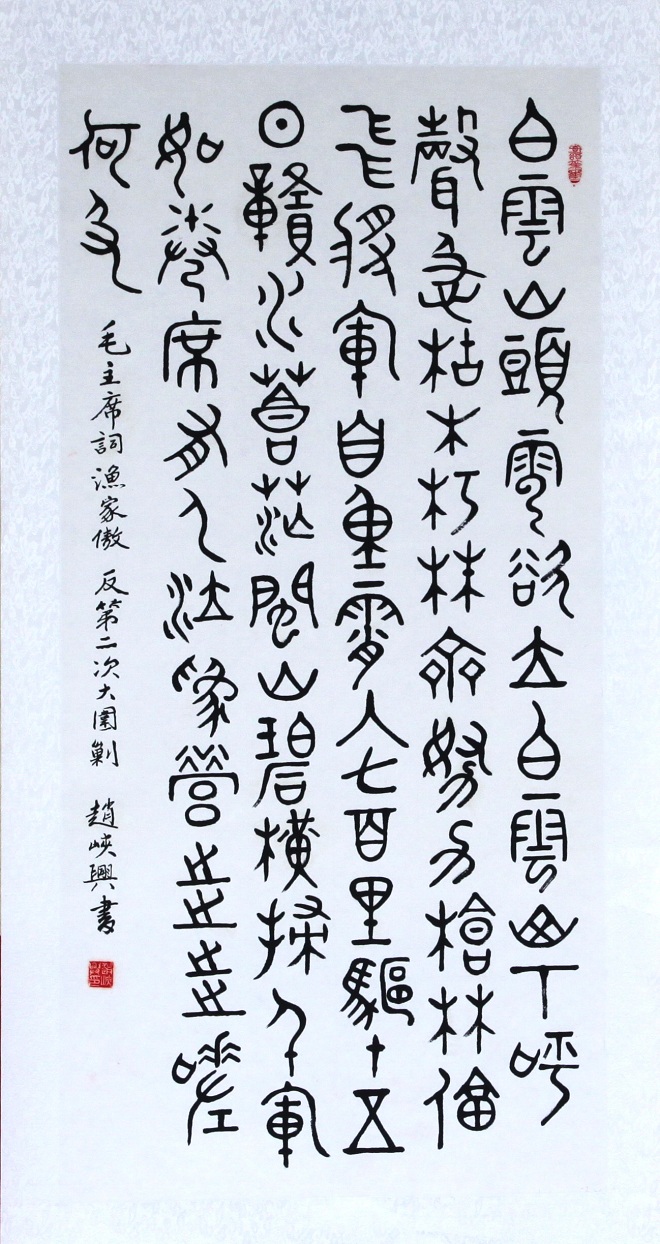 白雲山頭雲欲立白雲山下呼
聲急枯木朽株齊努力槍林偪
飛將軍自重霄入七百里驅十五
日贛水蒼茫閩山碧橫掃千軍
如卷席有人泣為營步步嗟
何及 毛主席詞漁家傲 反第二次大圍剿 趙峽興書